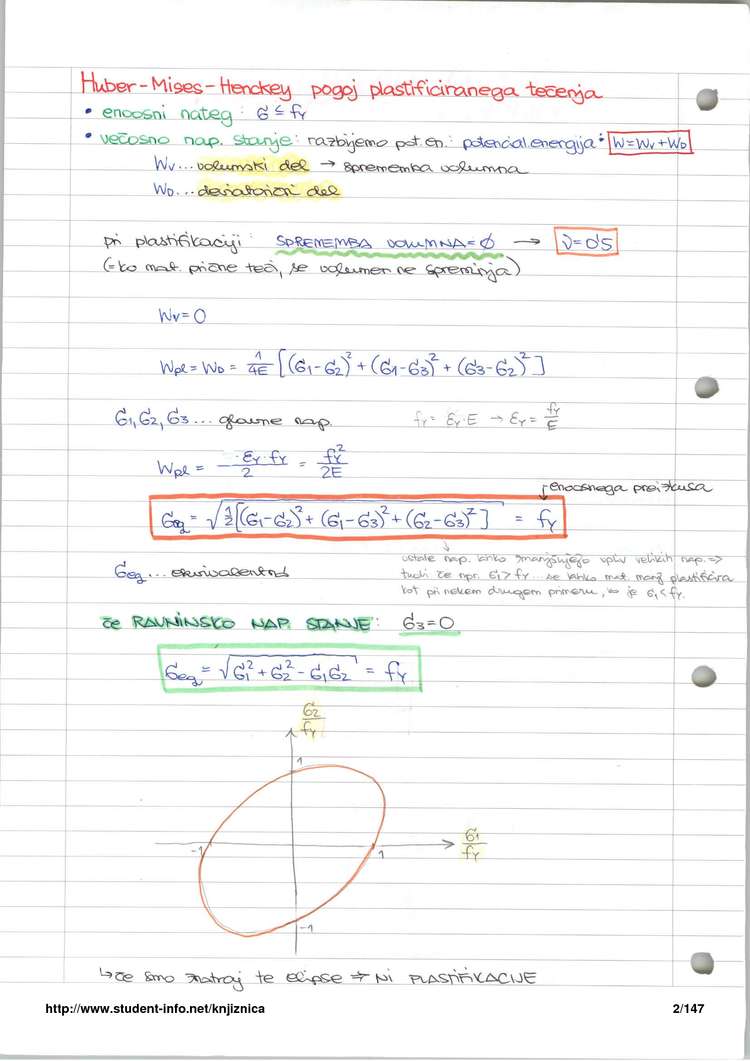 Huber-Mises-Henckey pogoj plastificiranega tečenja
• enoosni nateg: σ ≤ fY
• večosno nap. stanje: razbijemo pot. en.: potencial. energija: W=Wv+WD
Wv... volumski del → sprememba volumna
WD... deviatorični del
pri plastifikaciji: SPREMEMBA VOLUMNA=∅ → ν=0'5
(=ko mat. prične teči, se volumen ne spreminja)
Wv=0
Wpl = WD = 1/4E [(σ1-σ2)² + (σ1-σ3)² + (σ3-σ2)²]
σ1, σ2, σ3... glavne nap. fY = εY·E → εY = fY/E
Wpl = εY·fY/2 = fY²/2E
enoosnega preizkusa
σeq = √(1/2[(σ1-σ2)² + (σ1-σ3)² + (σ2-σ3)²]) = fY
ostale nap. lahko zmanjšujejo vpliv velikih nap. ⇒
σeq... ekvivalentna tudi če npr. σ1 > fY se lahko mat. manj plastificira
kot pri nekem drugem primeru, ko je σ1 < fY.
če RAVNINSKO NAP. STANJE: σ3=0
σeq = √(σ1² + σ2² - σ1σ2) = fY
σ2/fY
1
-1 1 σ1/fY
-1
↳ če smo znotraj te elipse ⇒ NI PLASTIFIKACIJE
http://www.student-info.net/knjiznica 2/147